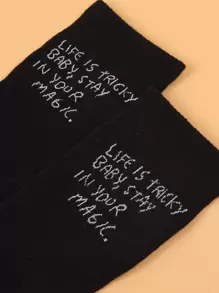 LIFE IS TRICKY
BABY, STAY
IN YOUR
MAGIC.
LIFE IS TRICKY
BABY, STAY
IN YOUR
MAGIC.